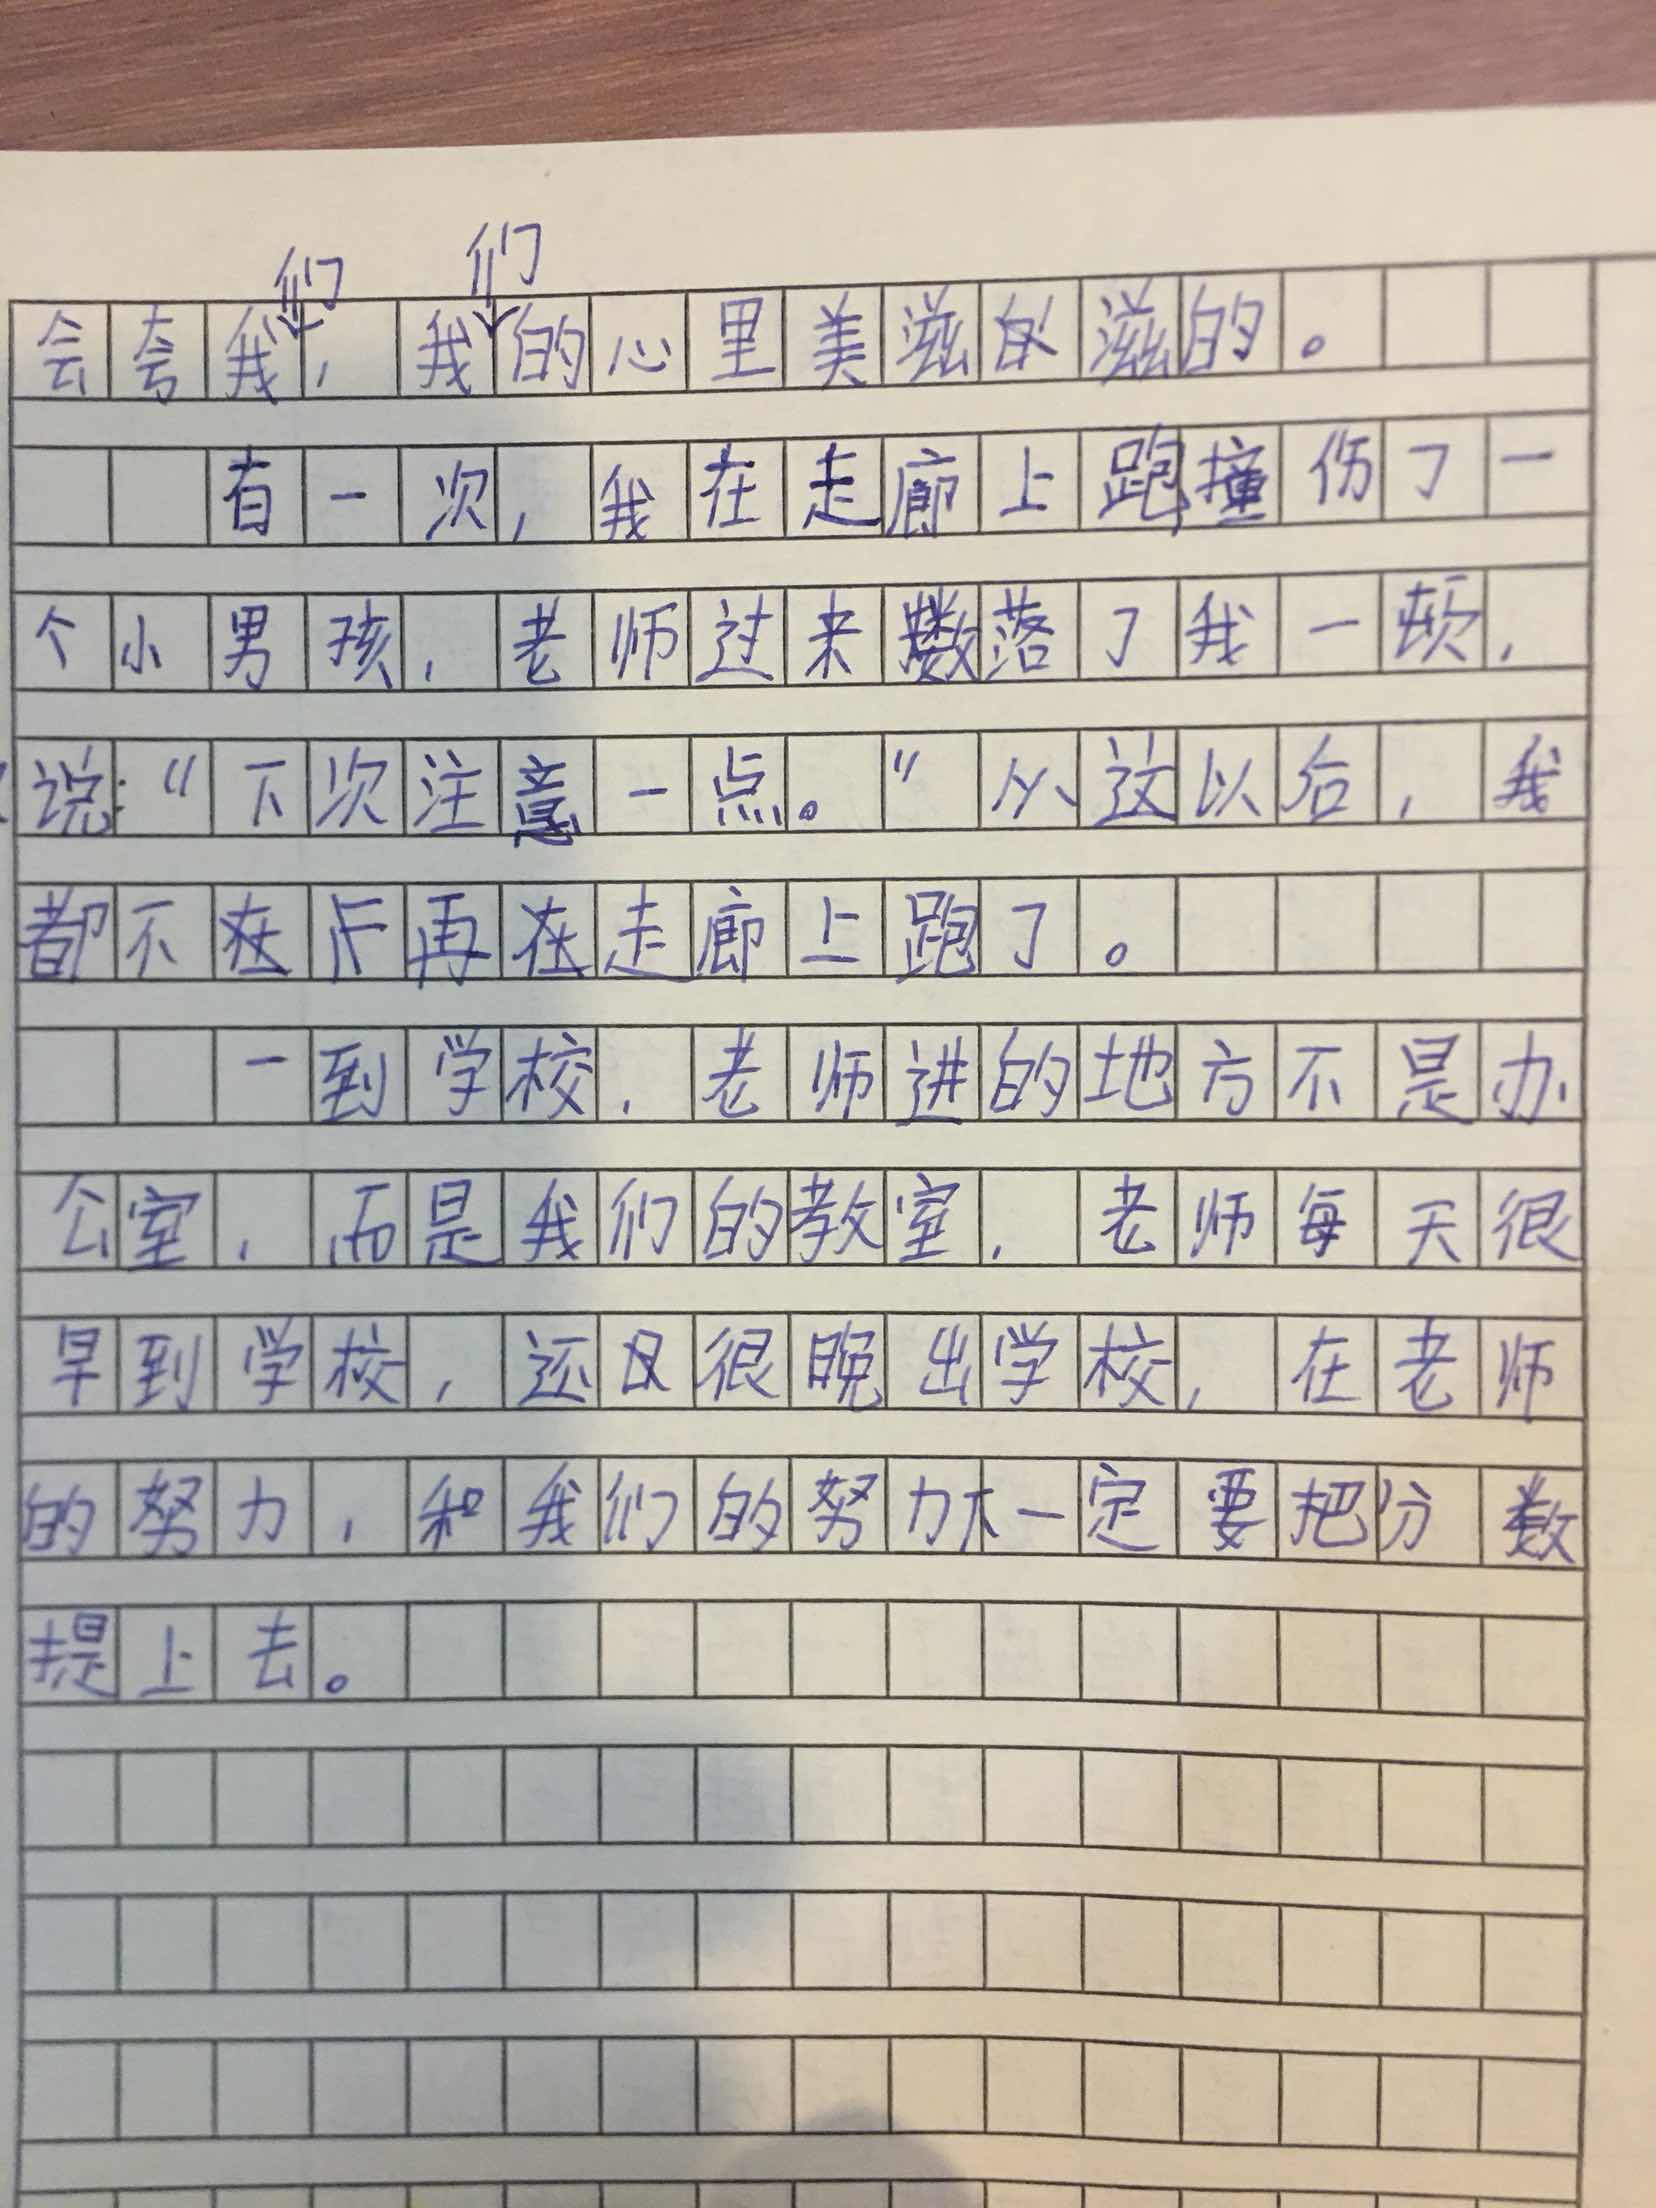 会夸我们，我们的心里美滋滋的。
有一次，我在走廊上跑撞伤了一
个小男孩，老师过来数落了我一顿，
说：“下次注意一点。”从这以后，我
都不再在走廊上跑了。
一到学校，老师进的地方不是办
公室，而是我们的教室，老师每天很
早到学校，还又很晚出学校，在老师
的努力，和我们的努力一定要把分数
提上去。